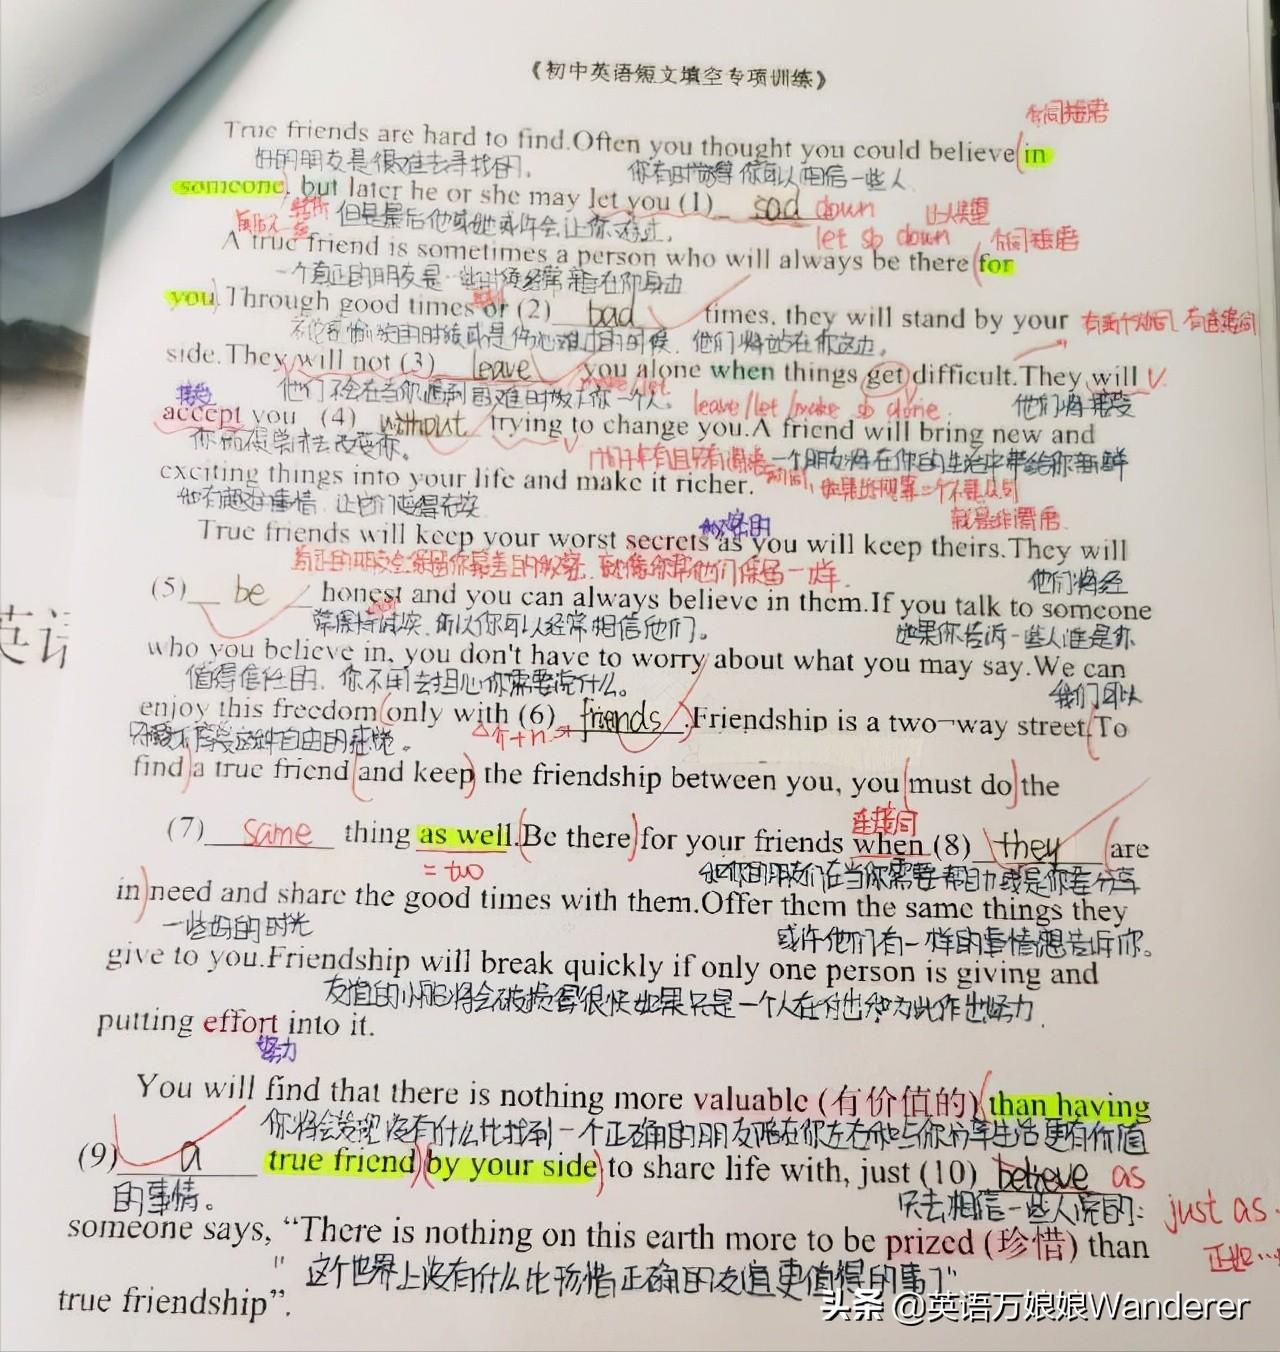 《初中英语短文填空专项训练》
介词短语
True friends are hard to find.Often you thought you could believe in
好的朋友是很难去寻找的. 你有时觉得你可以相信一些人.
someone, but later he or she may let you (1) sad down 让人失望
但是最后他或她或许会让你
let sb down 介词短语
A true friend is sometimes a person who will always be there for
一个真正的朋友是一些时候经常 在你身边
you.Through good times or (2) bad times, they will stand by your
有两个动词,有连接词
时候或是伤心难过的时候,他们将站在你这边。
side.They will not (3) leave you alone when things get difficult.They will
他们不会在当你遇到困难时放下你一个人. leave/let/make sb alone. 他们将接受
接受
accept you (4) without trying to change you.A friend will bring new and
你而不 尝试去改变你。
一个朋友将在你的生活中带给你新鲜
exciting things into your life and make it richer.
就是非谓语.
True friends will keep your worst secrets as you will keep theirs.They will
真正的朋友会保留你最 的 就像你帮他们保留一样. 他们将
(5) be honest and you can always believe in them.If you talk to someone
所以你可以经常相信他们。 如果你告诉一些人
who you believe in, you don't have to worry about what you may say.We can
值得信任的,你不用去担心你需要说什么。 我们可以
enjoy this freedom only with (6) friends.Friendship is a two-way street.To
介+n.
find a true friend and keep the friendship between you, you must do the
连接词
(7) same thing as well.Be there for your friends when (8) they are
= too
in need and share the good times with them.Offer them the same things they
一些好的时光 或许他们有一样的事情想告诉你。
give to you.Friendship will break quickly if only one person is giving and
友谊的小船将会破损得很快如果只是一个人在付出和为此作出努力.
putting effort into it.
努力
You will find that there is nothing more valuable (有价值的) than having
你将会发现没有什么比找到一个正确的朋友陪在你左右和与你分享生活更有价值
(9) a true friend by your side to share life with, just (10) believe as
的事情。 只去相信一些人说的: just as
someone says, “There is nothing on this earth more to be prized (珍惜) than
正如…
"这个世界上没有什么比珍惜正确的友谊更值得的事了"
true friendship”.
头条 @英语万娘娘Wanderer